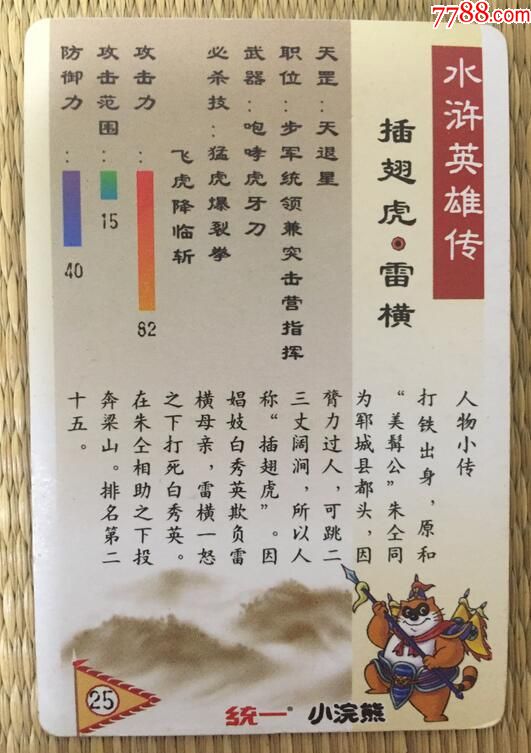 7788.com
水浒英雄传
插翅虎·雷横
天罡：天退星
职位：步军统领兼突击营指挥
武器：咆哮虎牙刀
必杀技：猛虎爆裂拳
飞虎降临斩
攻击力：
82
攻击范围：
15
防御力：
40
人物小传
打铁出身，原和
“美髯公”朱仝同
为郓城县都头，因
膂力过人，可跳二
三丈阔涧，所以人
称“插翅虎”。因
娼妓白秀英欺负雷
横母亲，雷横一怒
之下打死白秀英。
在朱仝相助之下投
奔梁山。排名第二
十五。
25
统一 小浣熊